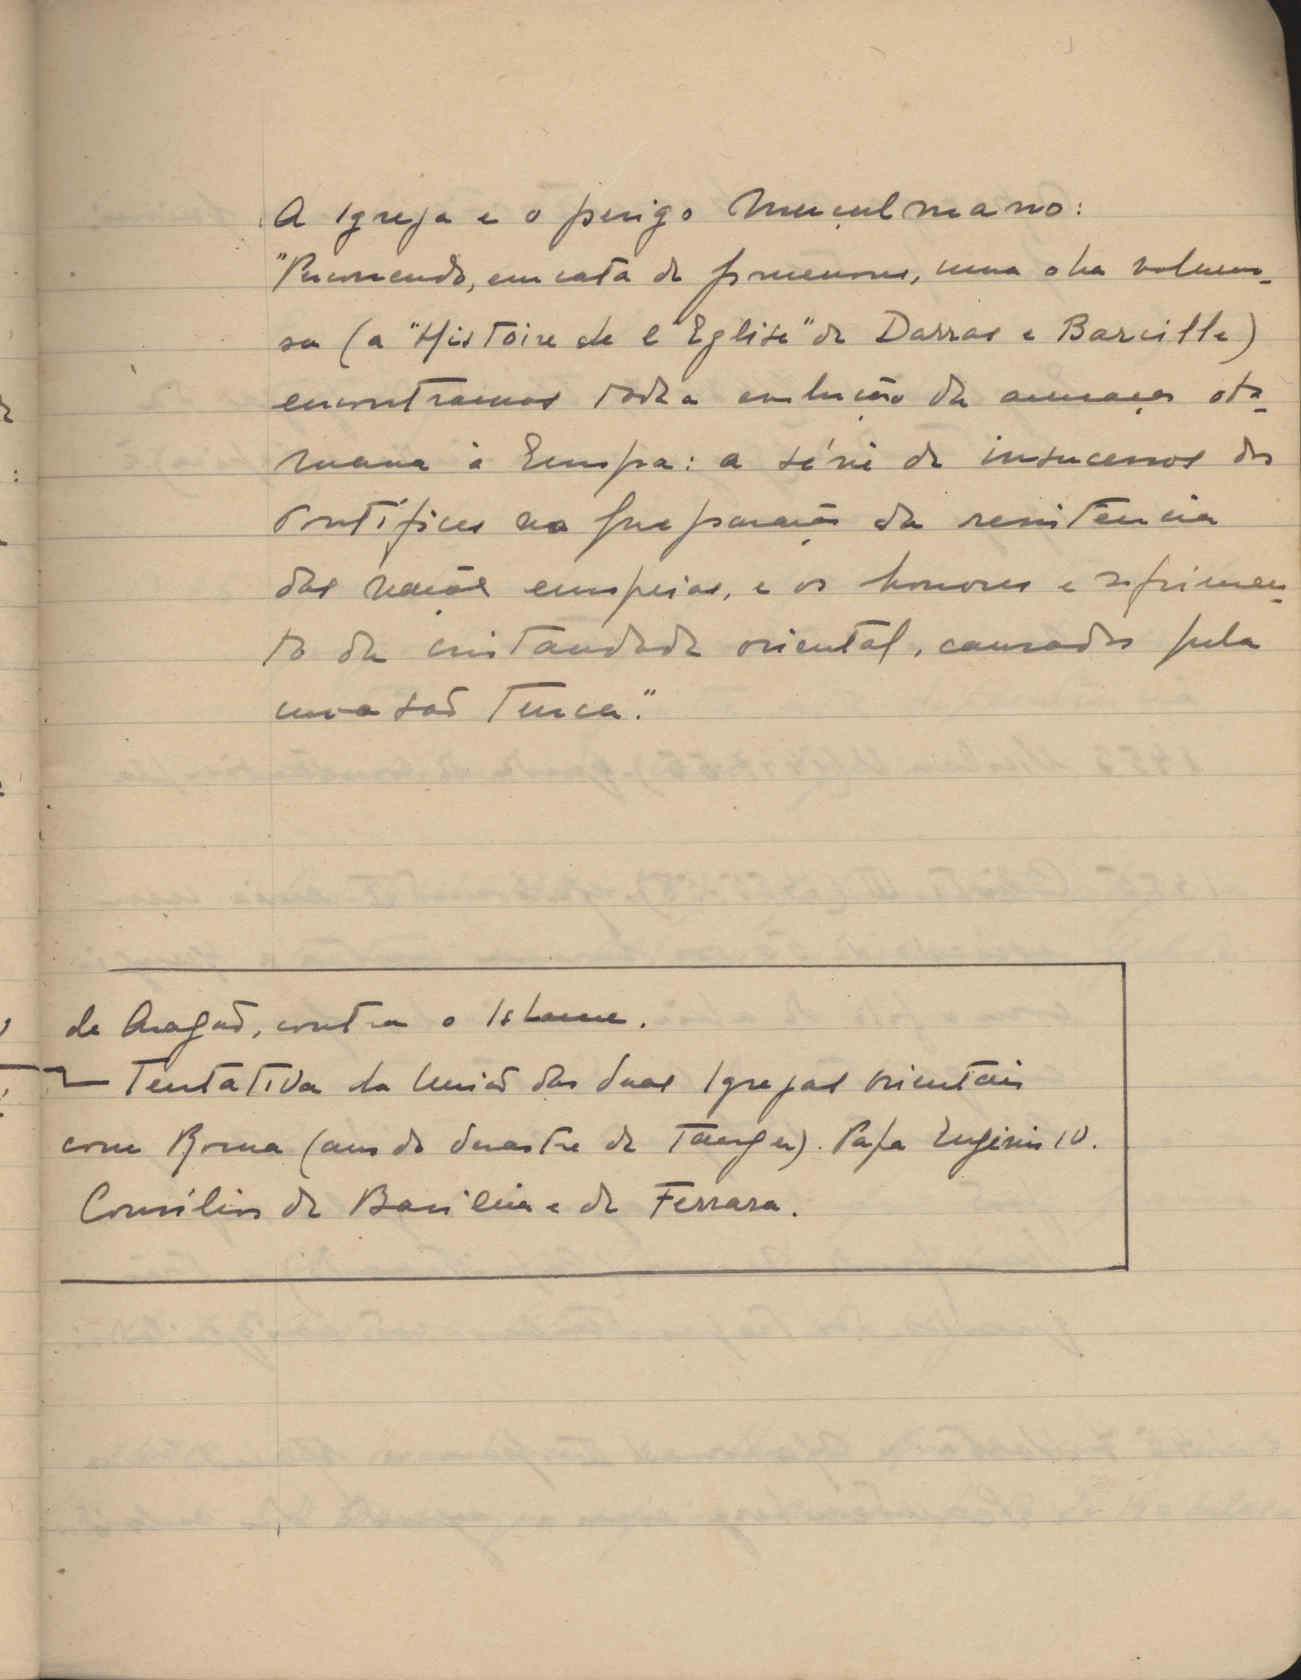 A Igreja e o perigo Muçulmano:
"Percorrendo, em cata de pormenores, uma obra volumo-
sa (a "Histoire de l'Eglise" de Darras e Bareille)
encontramos toda a evolução da ameaça oto-
mana à Europa: a série de insucessos dos
Pontífices na preparação da resistencia
das nações europeias, e os horrores e sofrimen-
to da cristandade oriental, causados pela
invasão turca."
de Aragão, contra o Islame.
Tentativa da União das duas Igrejas orientais
com Roma (ano do desastre de Tanger). Papa Eugénio IV.
Concílios de Basileia e de Ferrara.